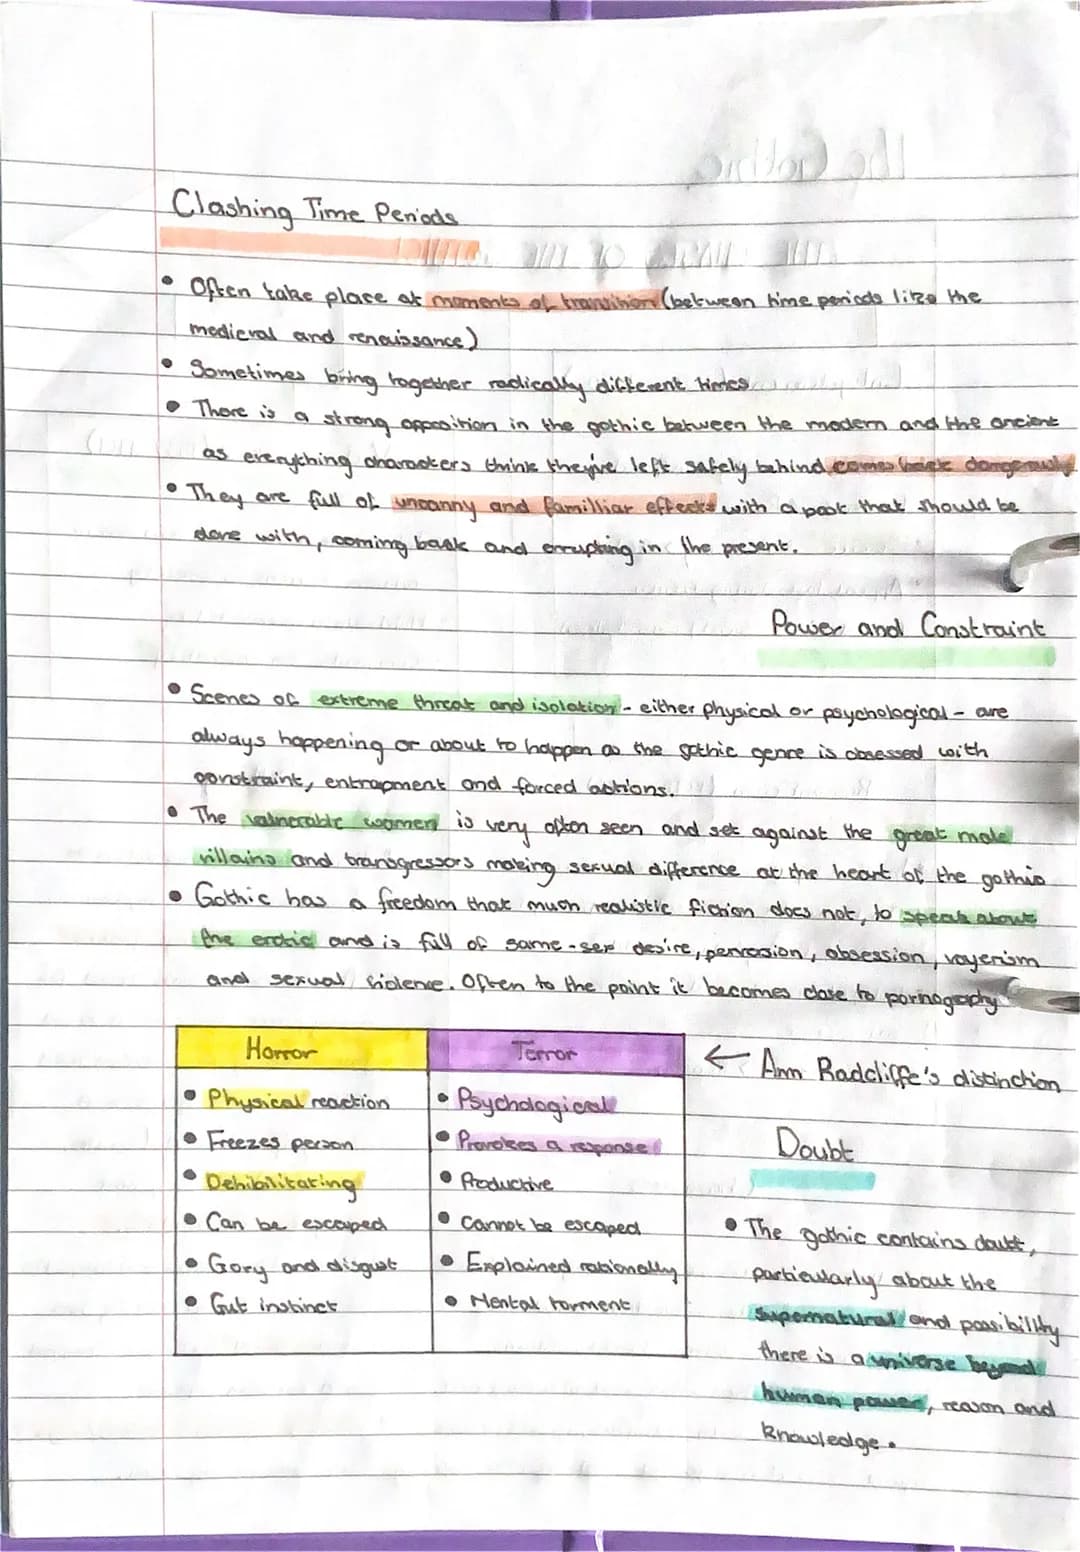 Clashing Time Periods
• Often take place at moments of transition (between time periods like the
medieval and renaissance)
• Sometimes bring together radically different times
• There is a strong opposition in the gothic between the modern and the ancient
as everything characters think they've left safely behind comes back dangerously
• They are full of uncanny and familliar effects with a past that should be
done with, coming back and errupting in the present.
Power and Constraint
• Scenes of extreme threat and isolation - either physical or psychological - are
always happening or about to happen as the gothic genre is obsessed with
constraint, entrapment and forced actions.
• The vulnerable women is very often seen and set against the great male
villains and transgressors making sexual difference at the heart of the gothic
• Gothic has a freedom that much realistic fiction does not, to speak about
the erotic and is full of same-sex desire, perversion, obsession, voyerism
and sexual violence. Often to the point it becomes close to pornography
Horror
• Physical reaction
• Freezes person
• Dehibilitating
• Can be escaped
• Gory and disgust
• Gut instinct
Terror
• Psychological
• Provokes a response
• Productive
• Cannot be escaped
• Explained rationally
• Mental torment
← Ann Radcliffe's distinction
Doubt
• The gothic contains doubt,
particularly about the
supernatural and possibility
there is a universe beyond
human power, reason and
knowledge.